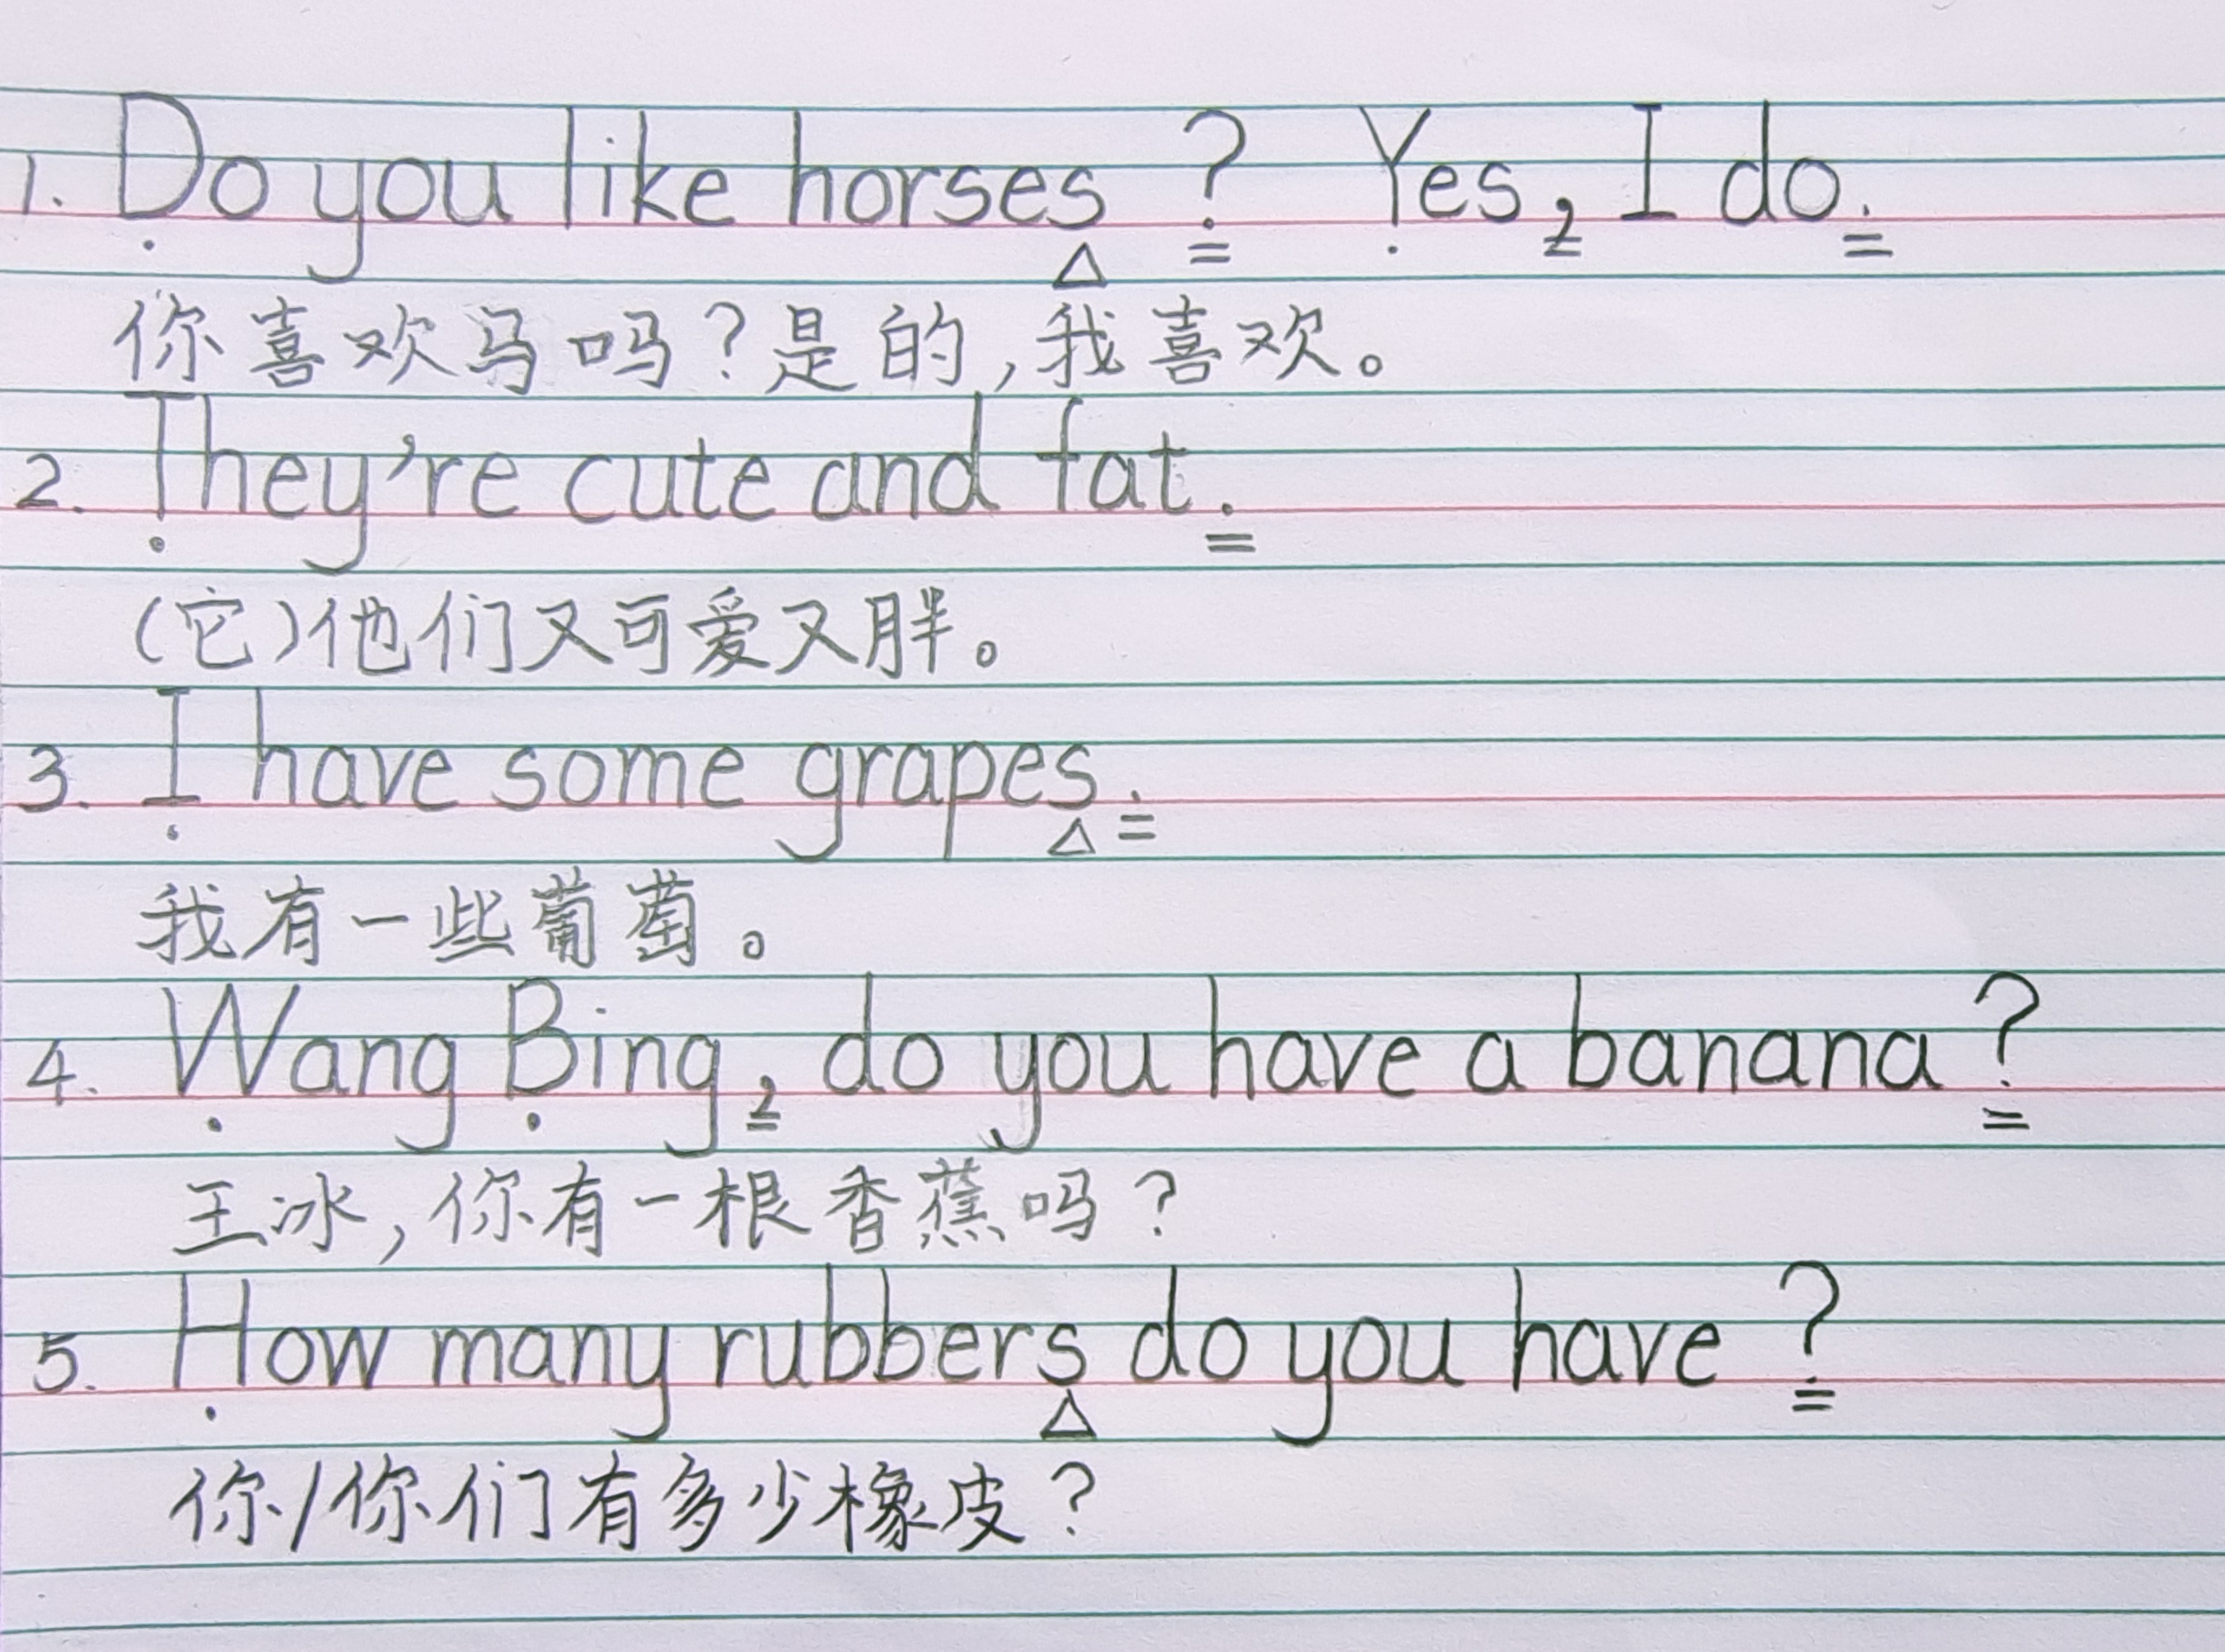 1. Do you like horses ? Yes, I do.
你喜欢马吗?是的,我喜欢。
2. They're cute and fat.
(它)他们又可爱又胖。
3. I have some grapes.
我有一些葡萄。
4. Wang Bing, do you have a banana ?
王冰,你有一根香蕉吗?
5. How many rubbers do you have ?
你/你们有多少橡皮?